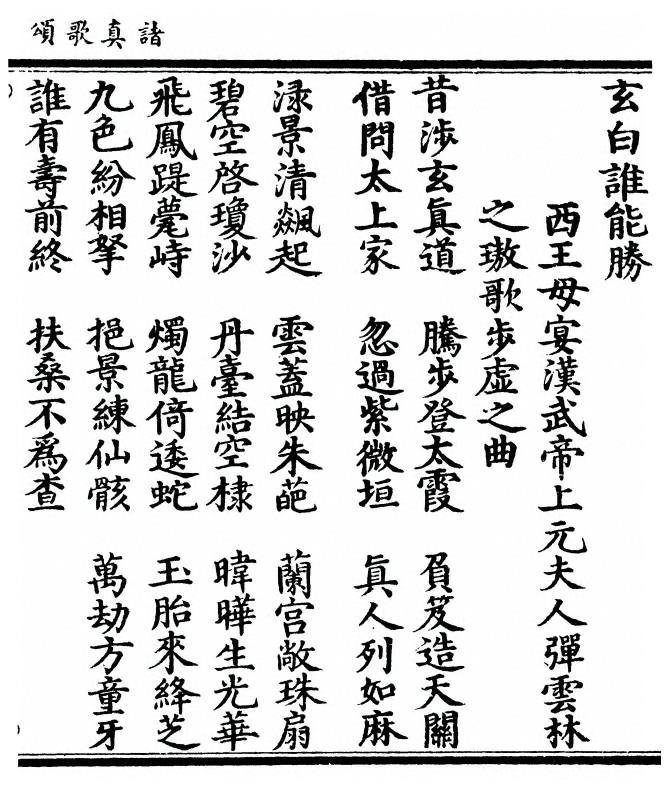 諸真歌頌
玄白誰能勝
西王母宴漢武帝上元夫人彈雲林
之璈歌步虛之曲
昔涉玄眞道 騰步登太霞 負笈造天關
借問太上家 忽過紫微垣 眞人列如麻
渌景清飆起 雲蓋映朱葩 蘭宮敞珠扇
碧空啓瓊沙 丹臺結空棣 暐曄生光華
飛鳳踶甍峙 燭龍倚逶蛇 玉胎來絳芝
九色紛相拏 挹景練仙骸 萬劫方童牙
誰有壽前終 扶桑不爲查